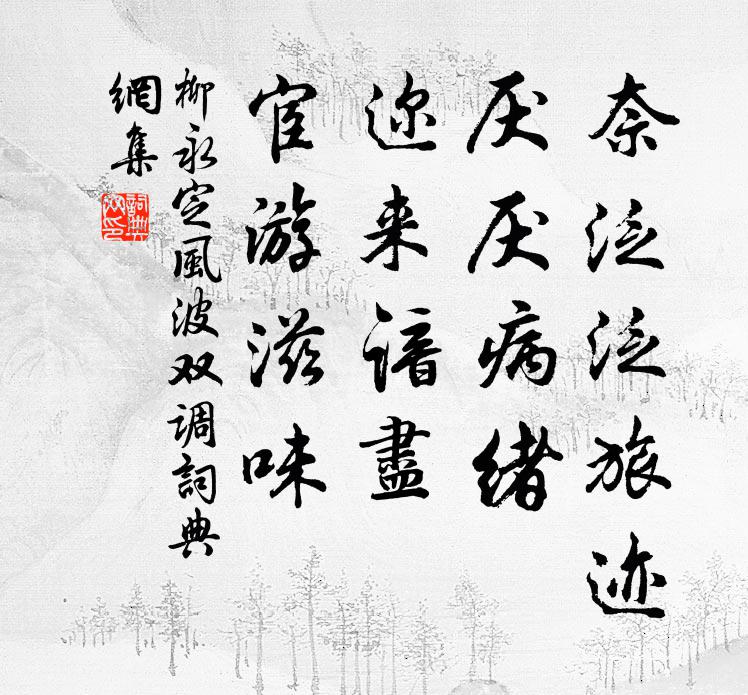 奈泛泛旅迹
厌厌病绪
迩来谙盡
宦游滋味
柳永定風波双调詞典
網集
詞典
网印